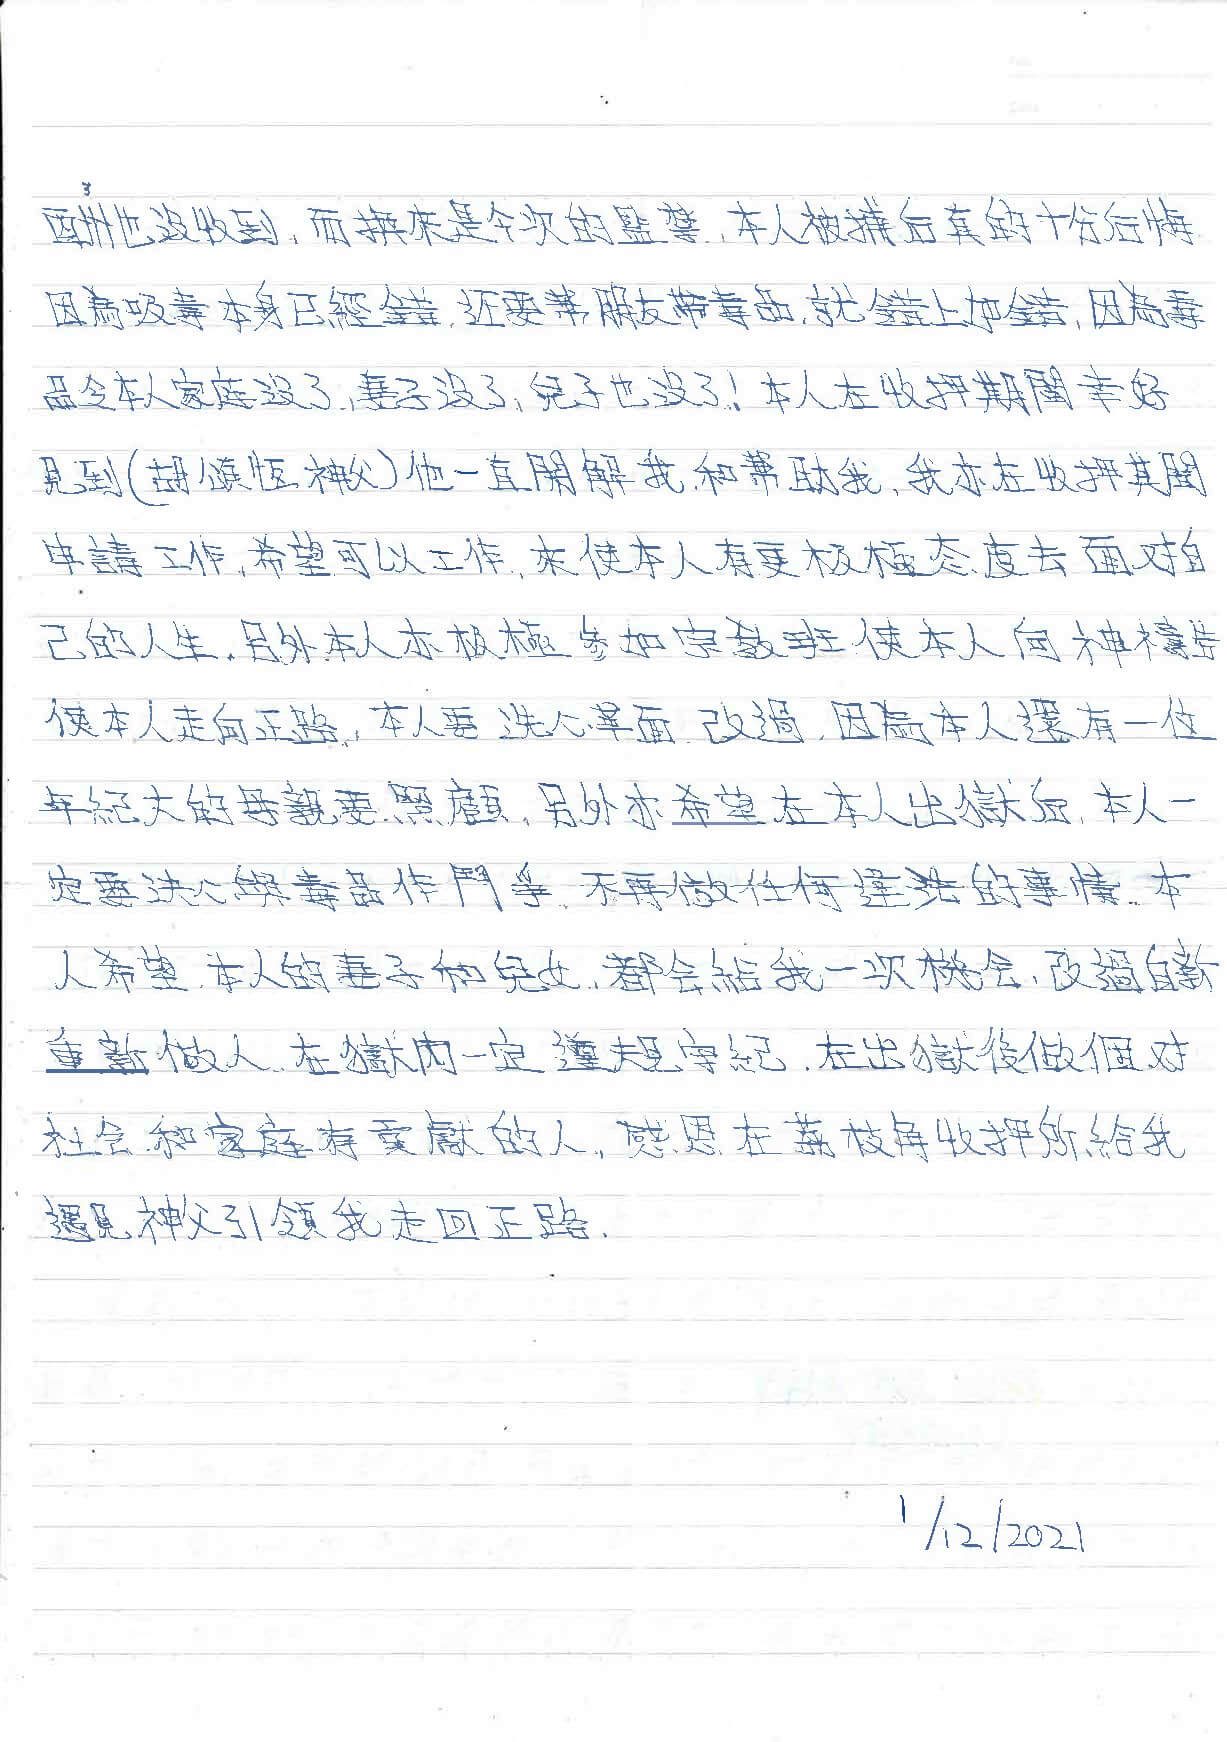 3
酬也没收到,而换來是今次的監禁,本人被捕后真的十分后悔
因為吸毒本身已經錯,还要帮朋友帶毒品,就錯上加錯,因為毒
品令本人家庭没了,妻子没了,兒子也没了!本人在收押期間幸好
見到(胡頌恆神父)他一直開解我,和幫助我,我亦在收押其間
申請工作,希望可以工作,來使本人有更极極态度去面对自
己的人生,另外本人亦极極參加宗教班使本人向神禱告
使本人走向正路,本人要洗心革面改過,因為本人還有一位
年紀大的母親要照顧,另外亦希望在本人出獄后,本人一
定要决心與毒品作鬥爭不再做任何違法的事情.本
人希望本人的妻子和兒女,都会給我一次機会,改過自新
重新做人,在獄内一定遵規守紀,在出獄後做個对
社会和家庭有貢獻的人,感恩在荔枝角收押所給我
遇見神父引領我走回正路.
1/12/2021